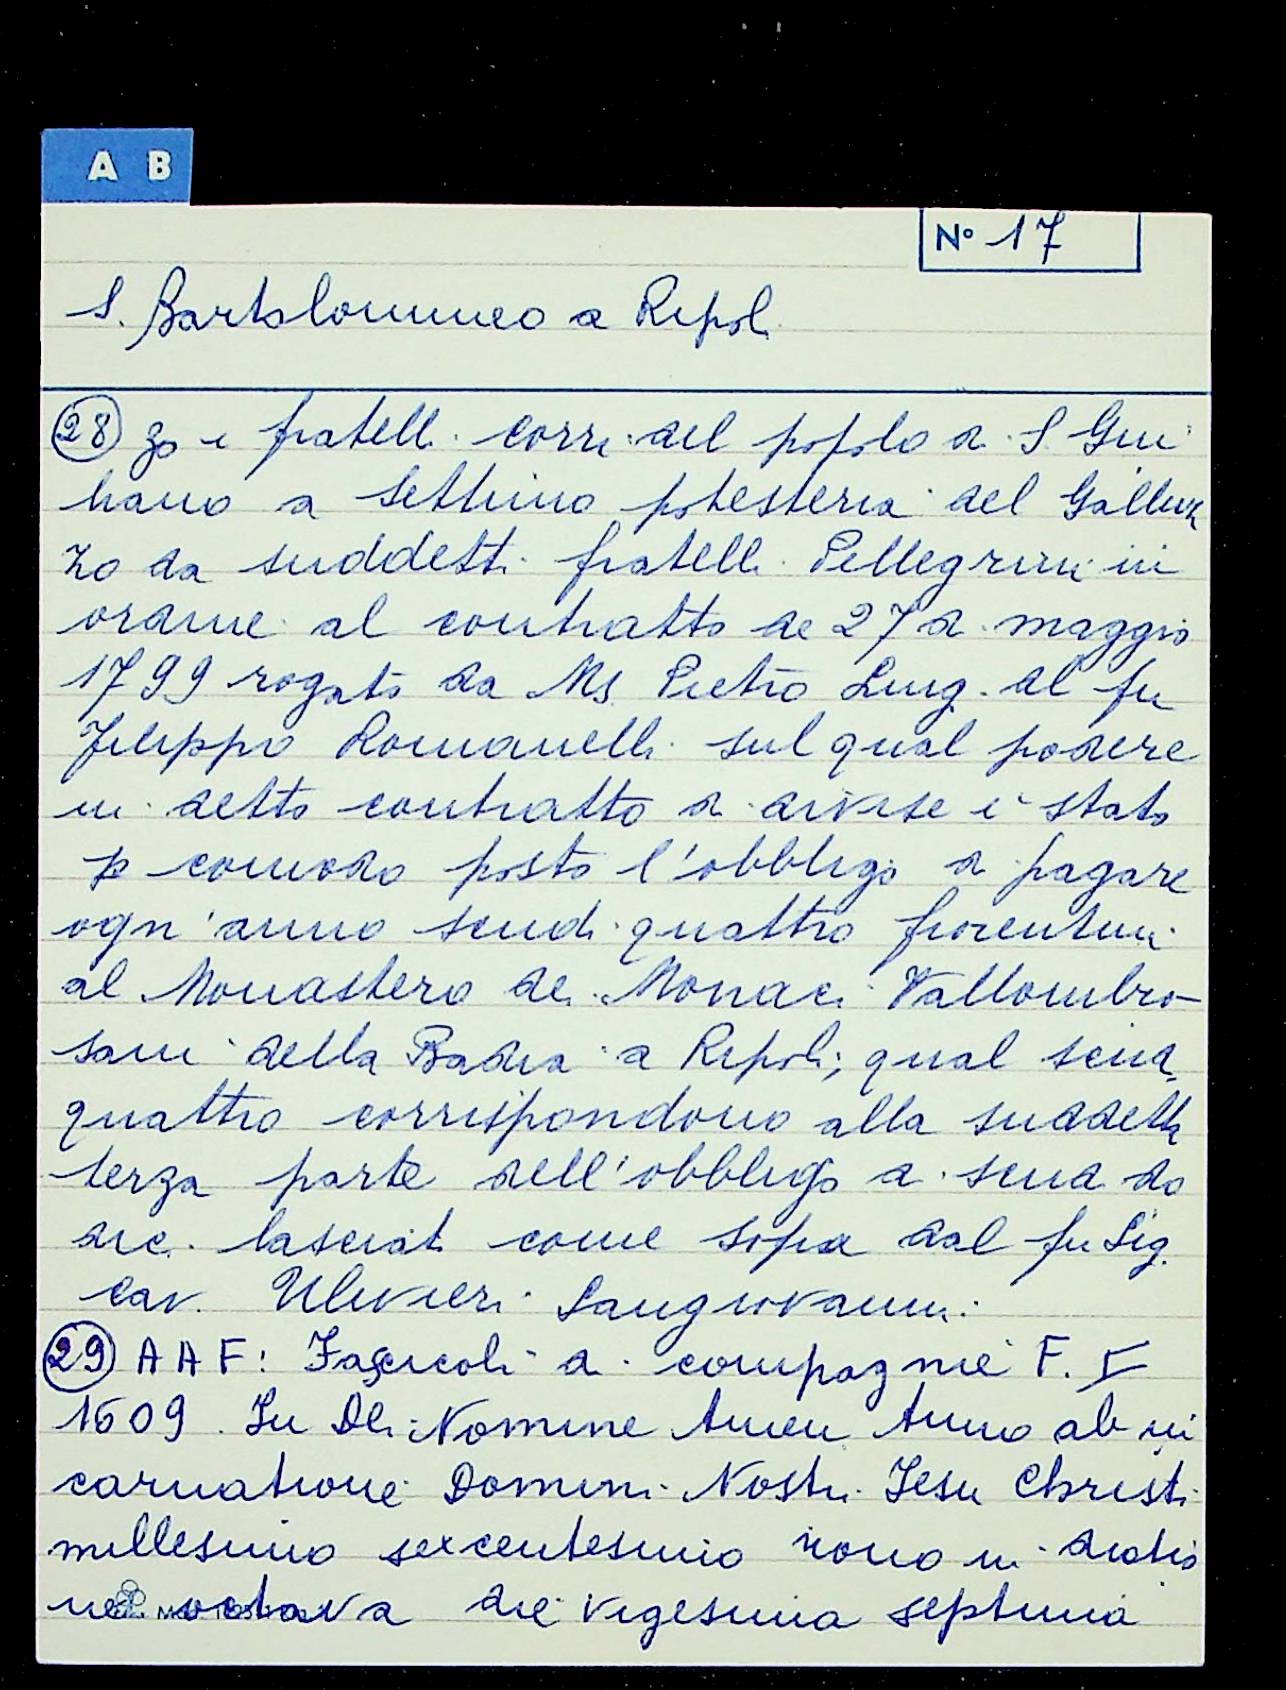 A B
N° 17
S. Bartolommeo a Ripoli
28 zo e fratelli Corsi del popolo di S Giu
liano a Settimo potesteria del Galluz
zo da suddetti fratelli Pellegrini in
ordine al contratto de 27 di maggio
1799 rogato da Ms Pietro Luigi del fu
Filippo Romanelli sul qual podere
in detto contratto di divise è stato
p comodo posto l'obbligo di pagare
ogn'anno scudi quattro fiorentini
al Monastero dei Monaci Vallombro-
sani della Badia a Ripoli; qual scudi
quattro corrispondono alla suddetta
terza parte dell'obbligo di scudi do
dici lasciati come sopra dal fu Sig.
Cav. Ulivieri Sangiovanni.
29 A A F: Fascicoli di compagnie F. V
1609. In Dei Nomine Amen Anno ab in
carnatione Domini Nostri Jesu Christi
millesimo sexcentesimo nono in dictio
ne octava die vigesima septima